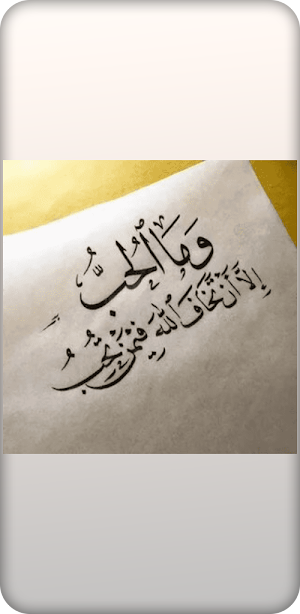 وَمَا الْحُبُّ
إِلَّا أَنْ تَخَافَ اللهَ فِيْمَنْ تُحِبُّ